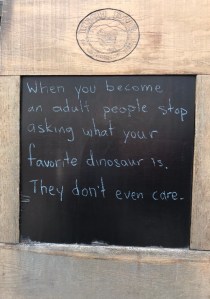 When you become
an adult people stop
asking what your
favorite dinosaur is.
They don't even care.